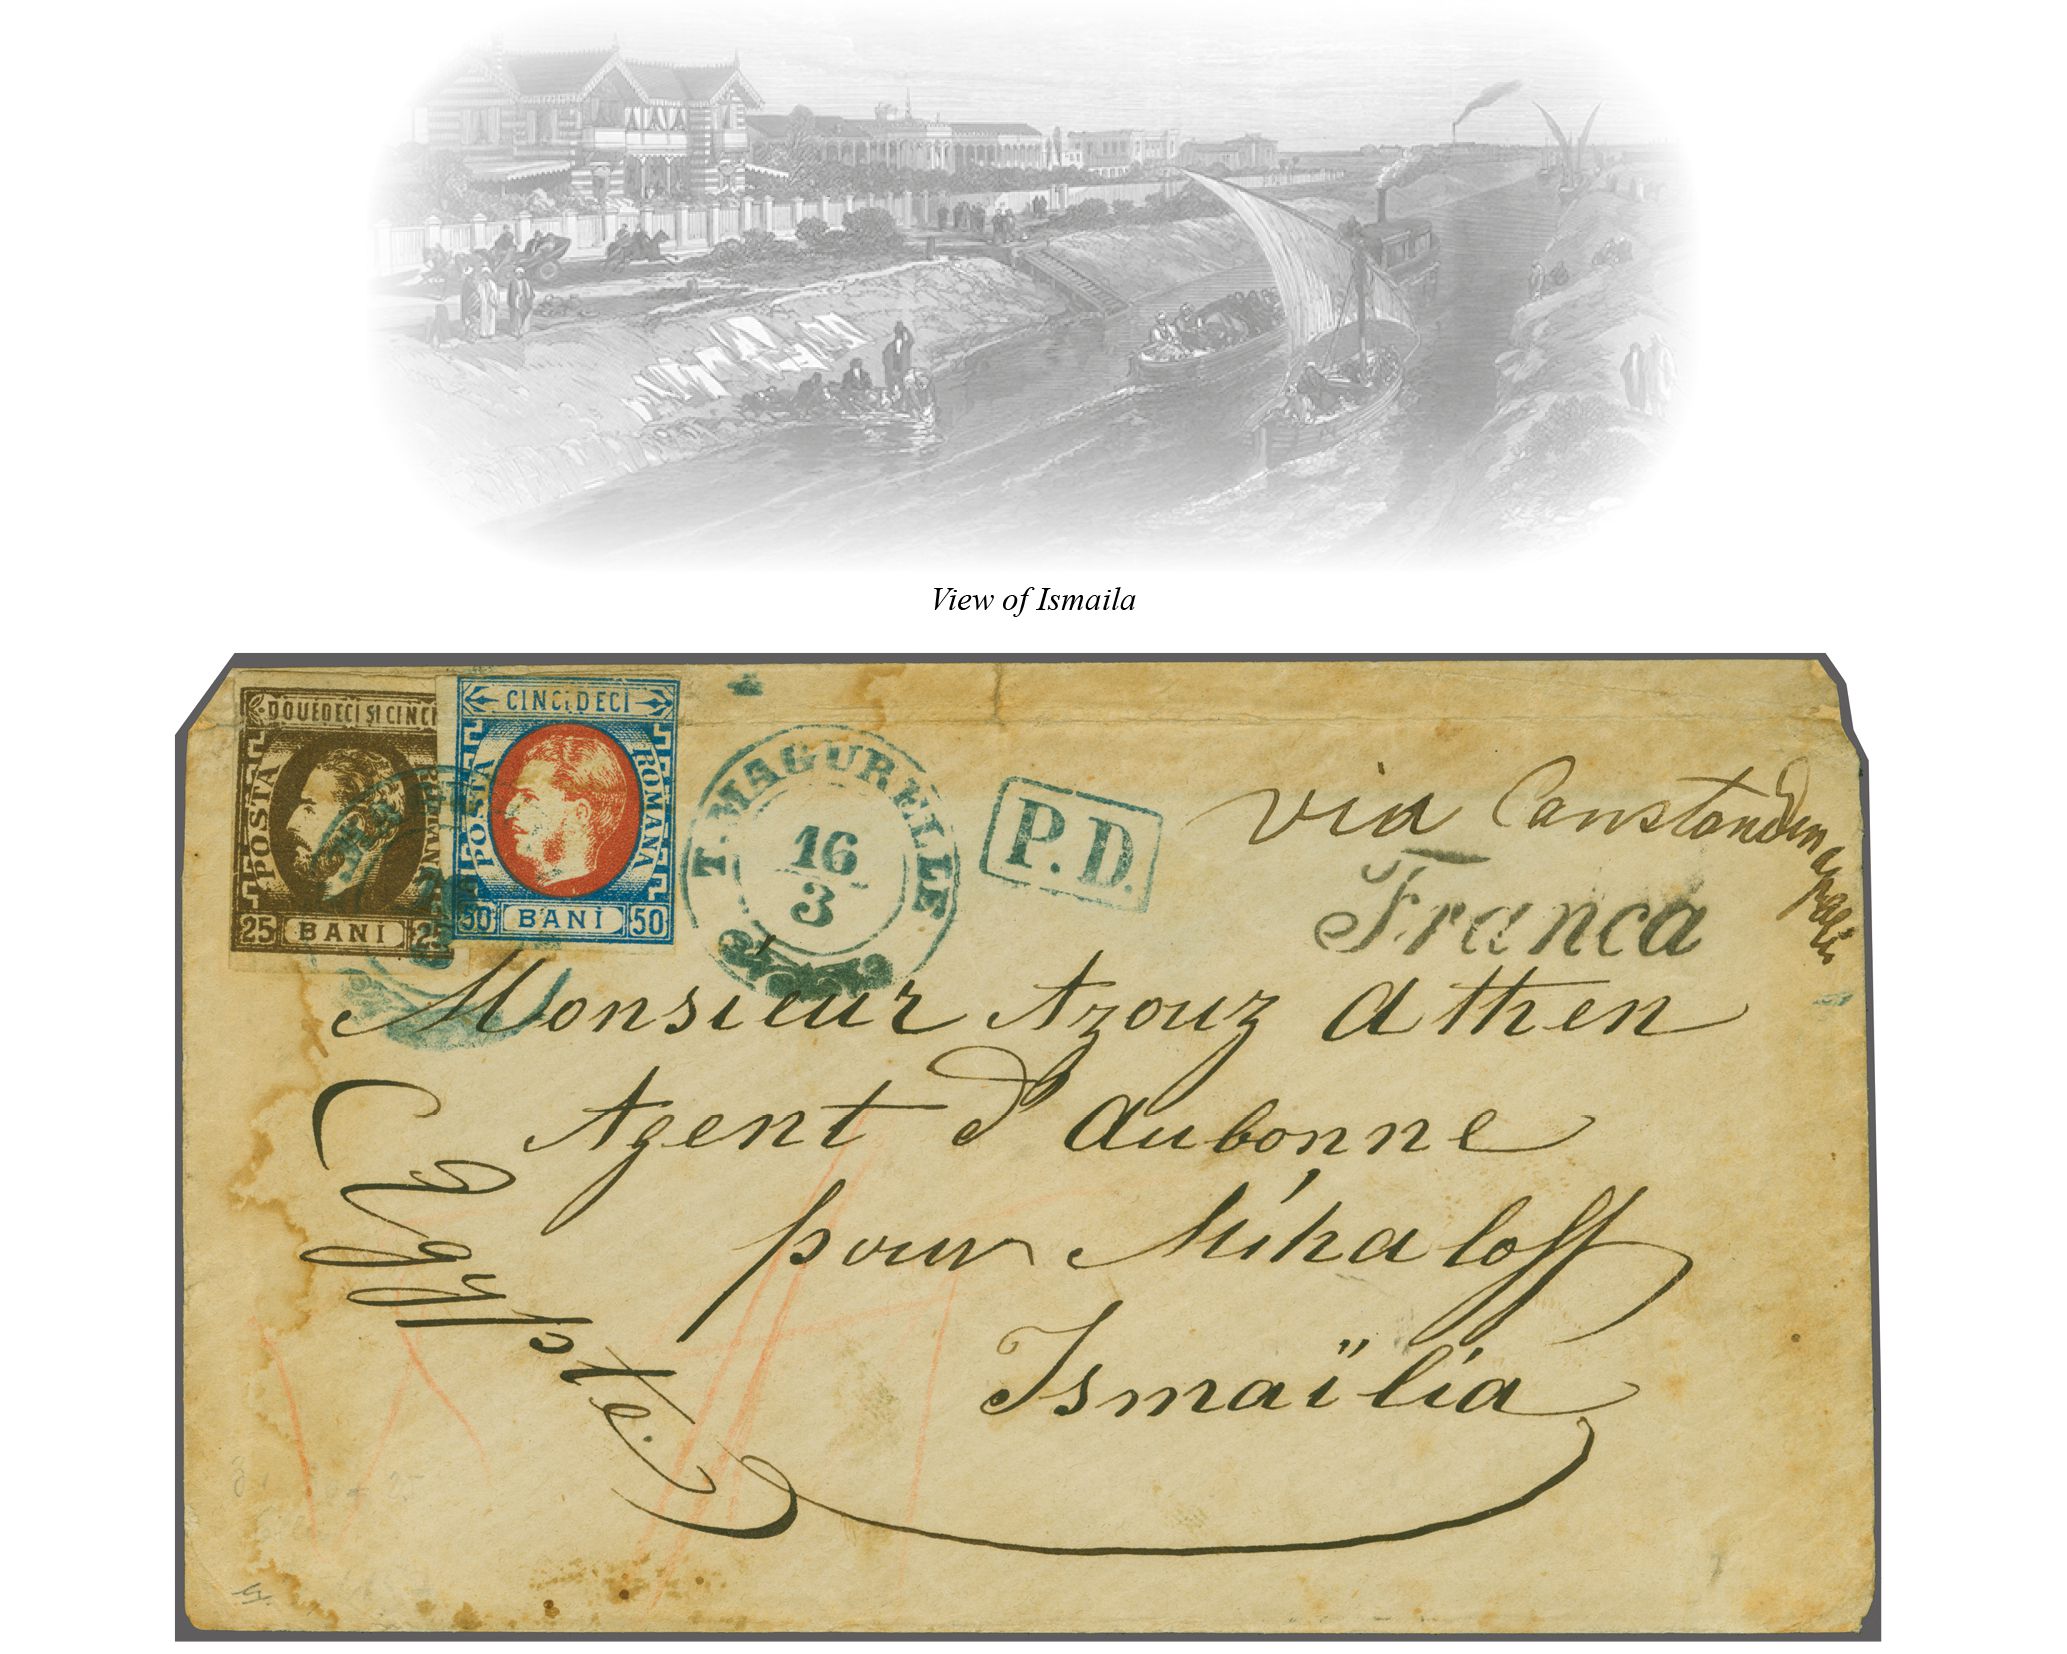 View of Ismaila
DOUEDECI ȘI CINCI
POSTA
25 BANI 25
CINCIDECI
POSTA
ROMANA
50 BANI 50
T. MAGURELLE
16
3
P.D.
via Constandinapolis
Franca
Monsieur Azouz Athen
Agent d'Aubonne
pour Mihaloff
Ismaïlia
Egypte.